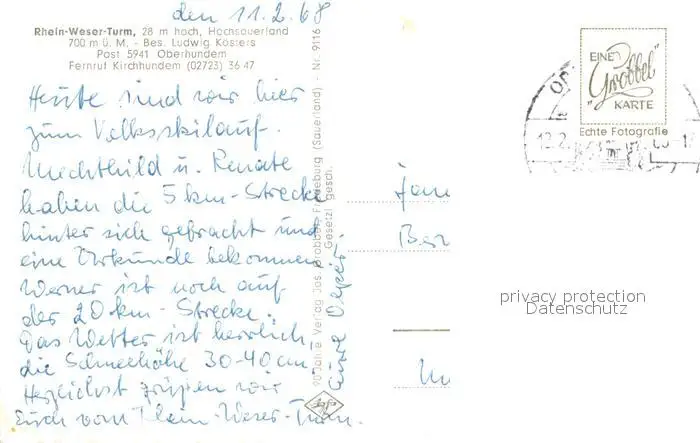 den 11.2.68
Rhein-Weser-Turm, 28 m hoch, Hochsauerland
700 m ü. M. - Bes. Ludwig Kösters
Post 5941 Oberhundem
Fernruf Kirchhundem (02723) 36 47
Heute sind wir hier
zum Volksskilauf.
Mechthild u. Renate
haben die 5 km-Strecke
hinter sich gebracht und
eine Urkunde bekommen
Werner ist noch auf
der 20 km-Strecke.
Das Wetter ist herrlich,
die Schneehöhe 30-40 cm.
Herzlichst grüßen wir
Euch vom Rhein-Weser-Turm.
90 Jahre Verlag Jos. Grobbel, Fredeburg (Sauerland) - Nr. 9116
Gesetzl. gesch.
EINE
"Grobbel"
KARTE
Echte Fotografie
12.2.
Fam
privacy protection
Datenschutz